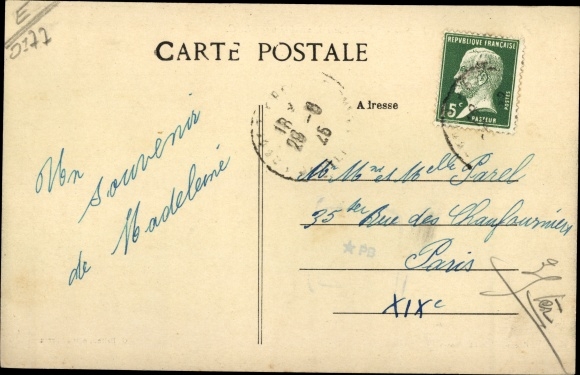 E
0177
CARTE POSTALE
REPUBLIQUE FRANÇAISE
5c
POSTES
PASTEUR
18
28 -8
25
Adresse
Un
souvenir
de Madeleine
Mr Mme et Melle Parel
35 ter Rue des Chaufourniers
Paris
XIXe
PB